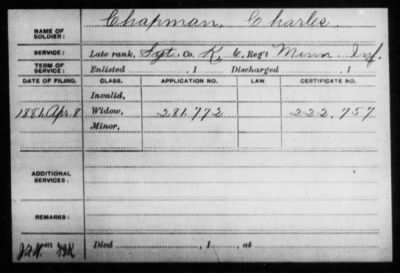 NAME OF SOLDIER: Chapman, Charles.
SERVICE: Late rank, Sgt. Co. K, 6, Reg't Minn. Inf.
TERM OF SERVICE: Enlisted , 1 Discharged , 1
DATE OF FILING. CLASS. APPLICATION NO. LAW. CERTIFICATE NO.
Invalid,
1881, Apr. 8 Widow, 281.772 222.757
Minor,
ADDITIONAL SERVICES:
REMARKS:
Died , 1 , at